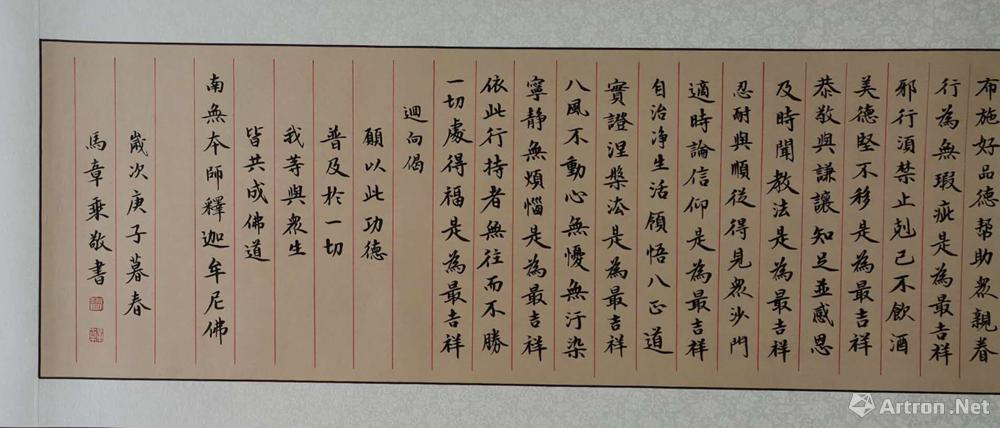 布施好品德幫助眾親眷
行為無瑕疵是為最吉祥
邪行須禁止剋己不飲酒
美德堅不移是為最吉祥
恭敬與謙讓知足並感恩
及時聞教法是為最吉祥
忍耐與順從得見眾沙門
適時論信仰是為最吉祥
自治淨生活領悟八正道
實證涅槃法是為最吉祥
八風不動心無憂無汙染
寧静無煩惱是為最吉祥
依此行持者無往而不勝
一切處得福是為最吉祥
迴向偈
願以此功德
普及於一切
我等與眾生
皆共成佛道
南無本師釋迦牟尼佛
歲次庚子暮春
馬章乘敬書
Artron.Net